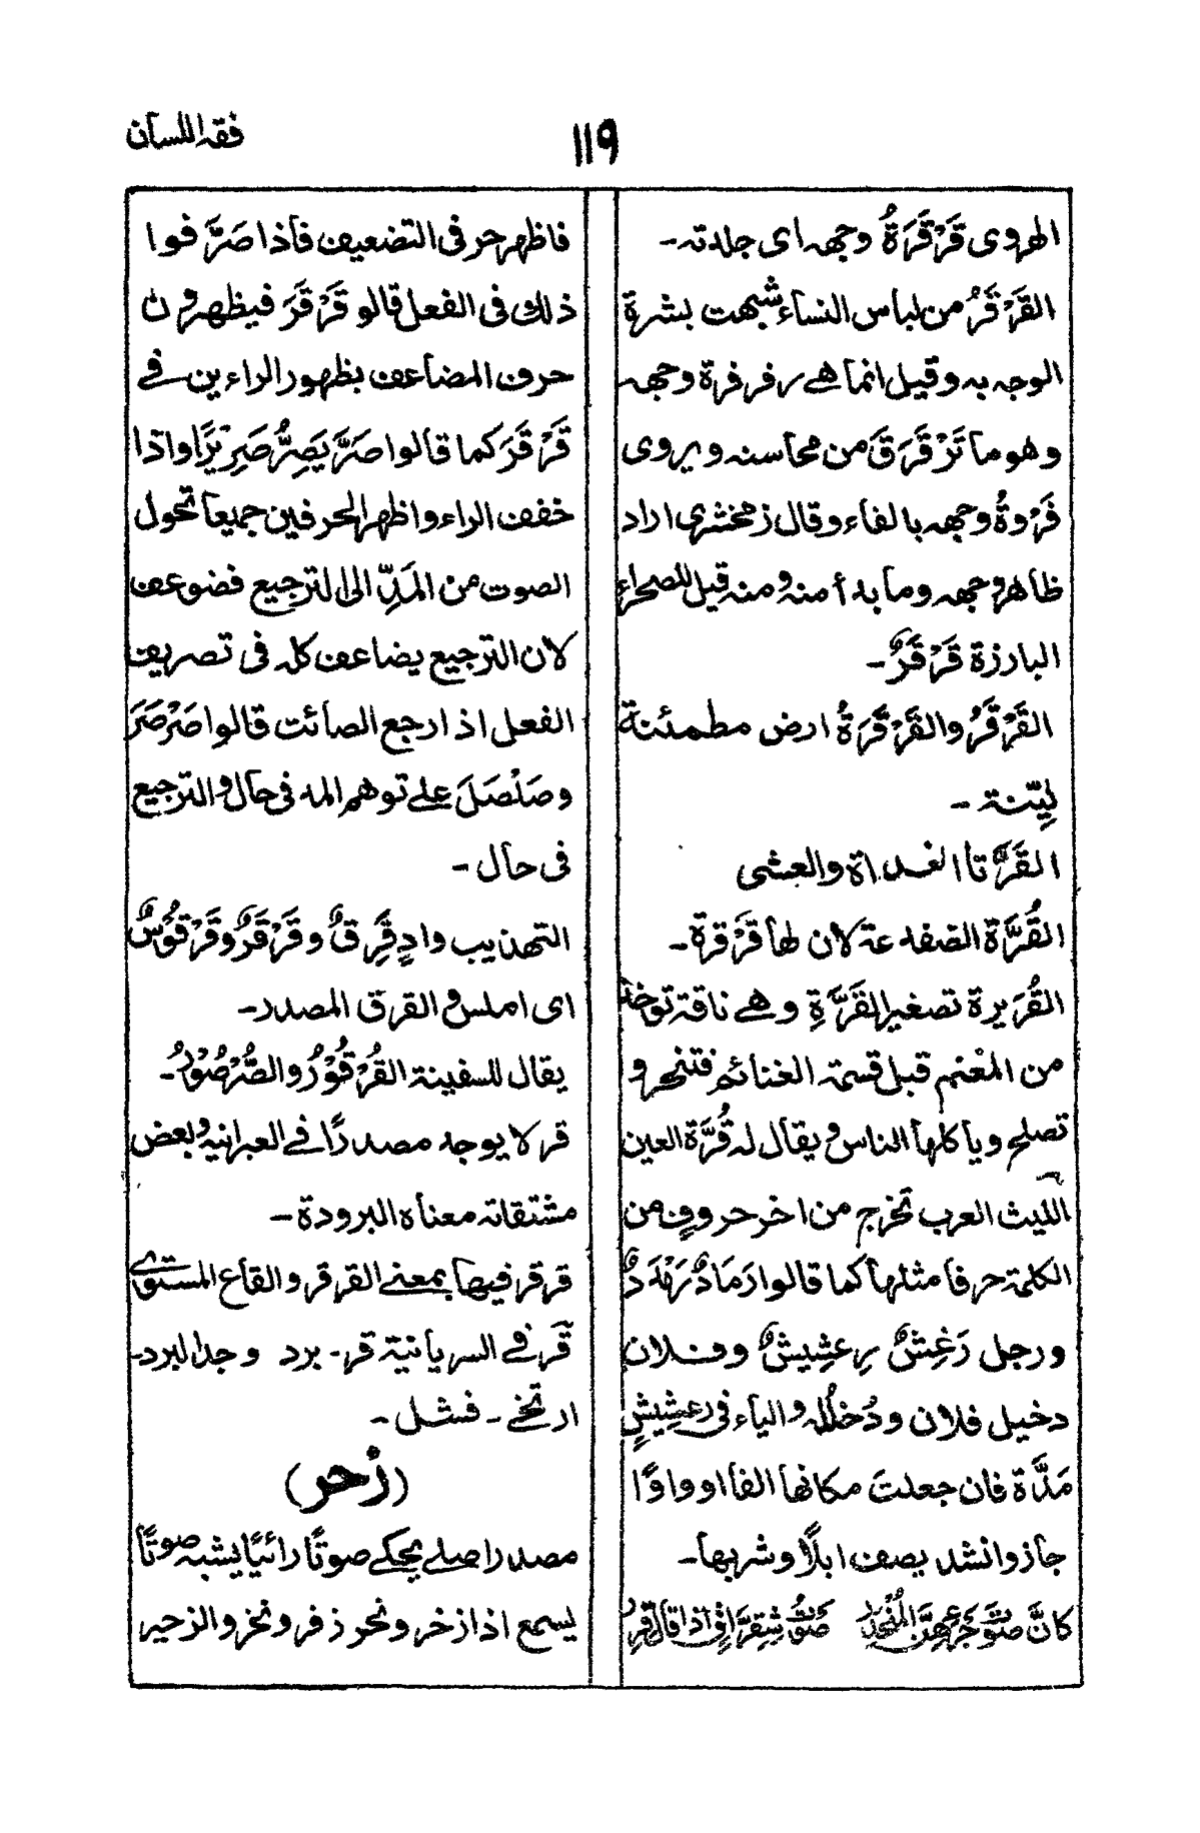 فقه اللسان
١١٩
الهروى قَرْقَرَةُ وجهه اى جلدته۔
القَرْقَرُ من لباس النساء شبهت بشرة
الوجه به وقيل انما هے رفرفرة وجهه
وهو ما تَرَقْرَقَ من محاسنه ويروى
فَرْوةُ وجهه بالفاء وقال زمخشرى اراد
ظاهر وجهه وما بدأ منه ومنه قيل للصحراء
البارزة قَرْقَرٌ۔
القَرْقَرُ والقَرْقَرَةُ ارض مطمئنة
لِيِّنة ۔
القَرَّتان الغداة والعشى
القُرَّة الضفدعة لان لها قَرْقرة۔
القُرَيرة تصغير القَرَّةِ وهے ناقة توخذ
من المغْنم قبل قسمة الغنائم فتنحر و
تصلح وياكلها الناس ويقال له قُرَّة العين
الليث العرب تخرج من اخر حروفٍ من
الكلمة حرفا مثلها كما قالوا رَمَادٌ رَمْدَدٌ
ورجل رَعِشٌ رِعشِيشٌ وفلان
دخيل فلان ودُخلُله والياء فى رعشِيشٍ
مَدَّة فان جعلتَ مكانها الفا او واوًا
جاز وانشد يصف ابلًا وشربها۔
كانَّ صَوْتَ جَرْعِهنَّ المُنْحَدِر صَوْتُ شِقِرَّاقٍ اذا قال قِرِرْ
فاظهر حرفى التضعيف فاذا صَرَّفوا
ذلك فى الفعل قالو قَرْقَرَ فيظهرون
حرف المضاعف بظهور الراءين فے
قَرْقَرَ كما قالوا صَرَّ يَصِرُّ صَرِيْرًا واذا
خفف الراء واظهر الحرفين جميعا تحول
الصوت من المَدِّ الى الترجيع فضوعف
لان الترجيع يضاعف كله فى تصريف
الفعل اذا رجع الصائت قالوا صَرْصَرَ
وصَلْصَلَ علے توهم المد فى حال والترجيع
فى حال ۔
التهذيب وادٍ قَرِقٌ وقَرْقَرٌ وقَرْقَوُسٌ
اى املس والقرق المصدر۔
يقال للسفينة القُرْقُوْرُ والصُّرْصُوْرُ۔
قر لا يوجد مصدرًا فے العبرانية وبعض
مشتقاته معناه البرودة ۔
قرقر فيها بمعنے القرقر والقاع المستوى
قَرَ فے السريانية قر۔ برد وجد البرد۔
ارتخے ۔ فشل ۔
(زحر)
مصدر اصلے يحكے صوتًا رائيًا يشبه صوتًا
يسمع اذا زخر ونحر وزفر ونخر والزحير